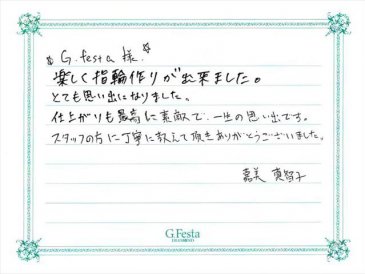 ☆G.festa 様.☆
楽しく指輪作りが出来ました。
とても思い出になりました。
仕上がりも最高に素敵で、一生の思い出です。
スタッフの方に丁寧に教えて頂きありがとうございました。
嘉美 真智子
G.Festa